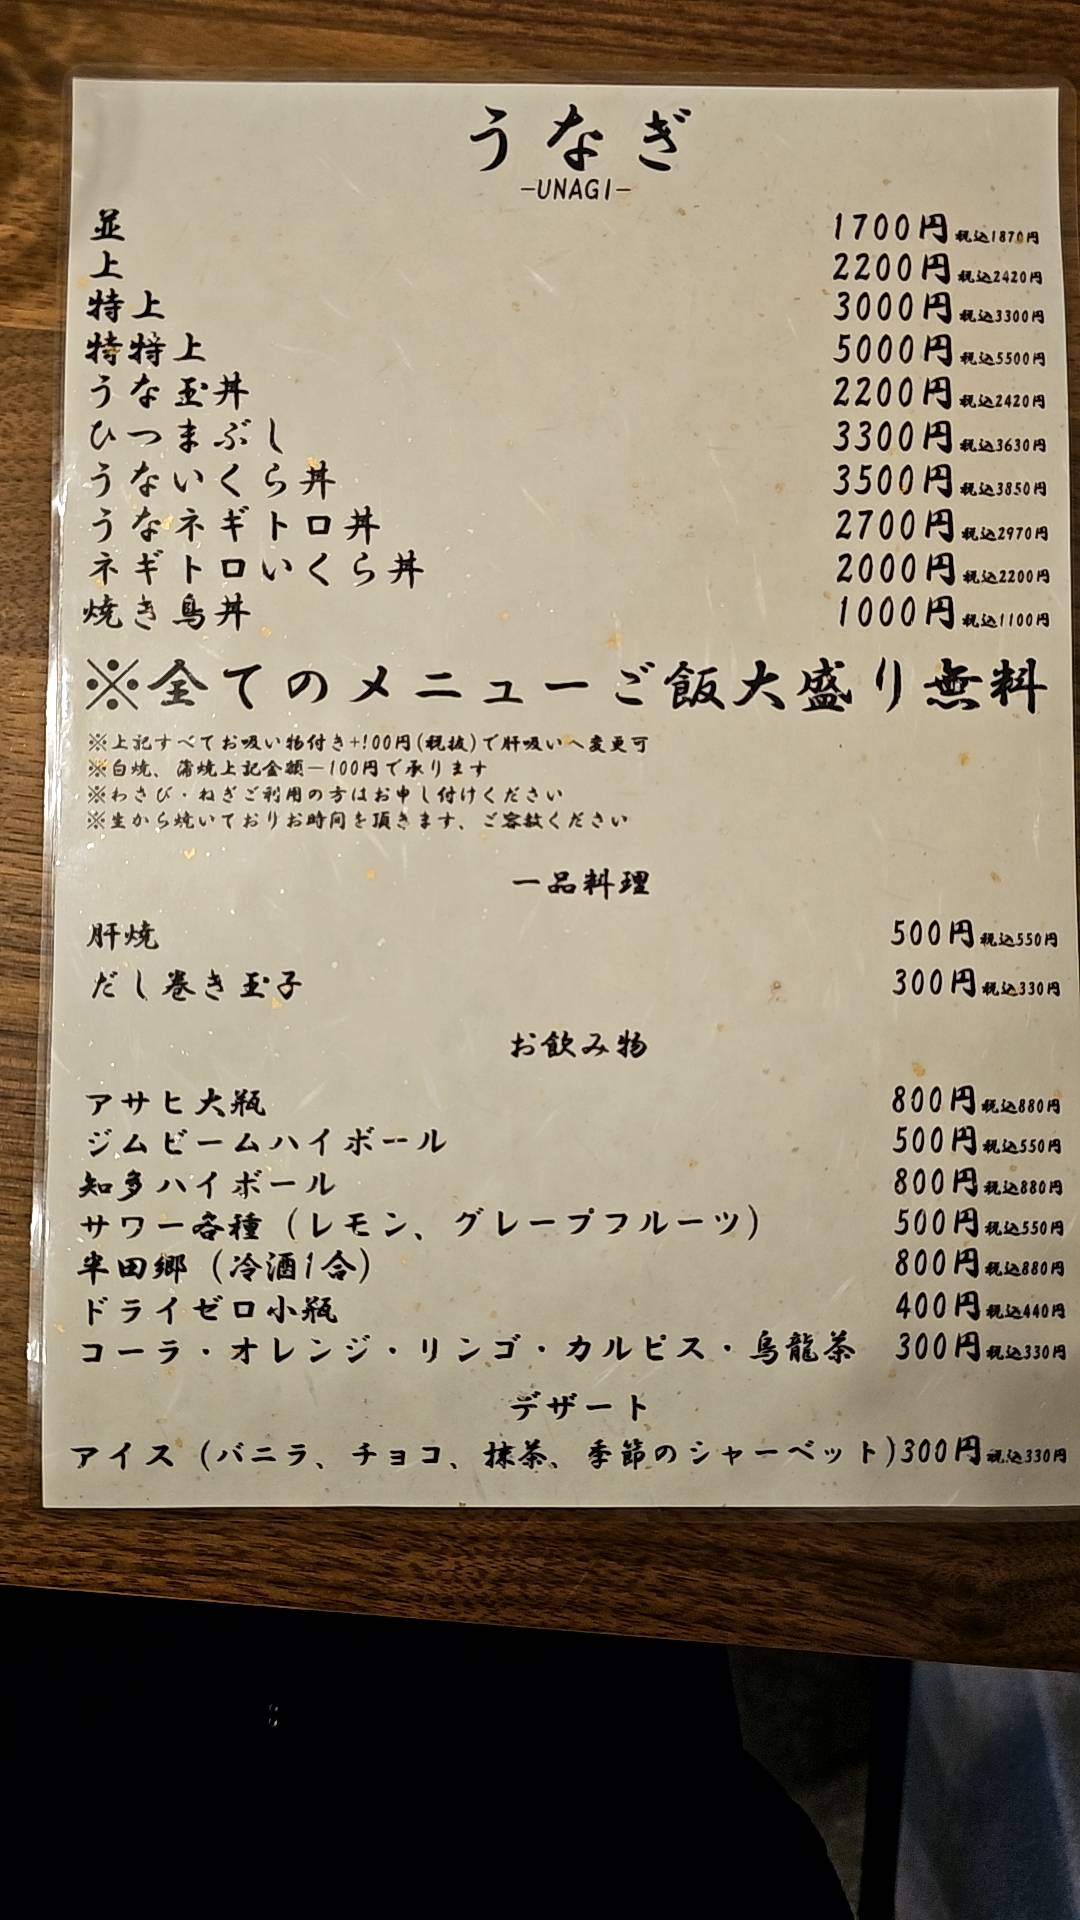 うなぎ
-UNAGI-
並 1700円税込1870円
上 2200円税込2420円
特上 3000円税込3300円
特特上 5000円税込5500円
うな玉丼 2200円税込2420円
ひつまぶし 3300円税込3630円
うないくら丼 3500円税込3850円
うなネギトロ丼 2700円税込2970円
ネギトロいくら丼 2000円税込2200円
焼き鳥丼 1000円税込1100円
※全てのメニューご飯大盛り無料
※上記すべてお吸い物付き+100円(税抜)で肝吸いへ変更可
※白焼、蒲焼上記金額ー100円で承ります
※わさび・ねぎご利用の方はお申し付けください
※生から焼いておりお時間を頂きます、ご容赦ください
一品料理
肝焼 500円税込550円
だし巻き玉子 300円税込330円
お飲み物
アサヒ大瓶 800円税込880円
ジムビームハイボール 500円税込550円
知多ハイボール 800円税込880円
サワー各種（レモン、グレープフルーツ） 500円税込550円
半田郷（冷酒1合） 800円税込880円
ドライゼロ小瓶 400円税込440円
コーラ・オレンジ・リンゴ・カルピス・烏龍茶 300円税込330円
デザート
アイス（バニラ、チョコ、抹茶、季節のシャーベット)300円税込330円